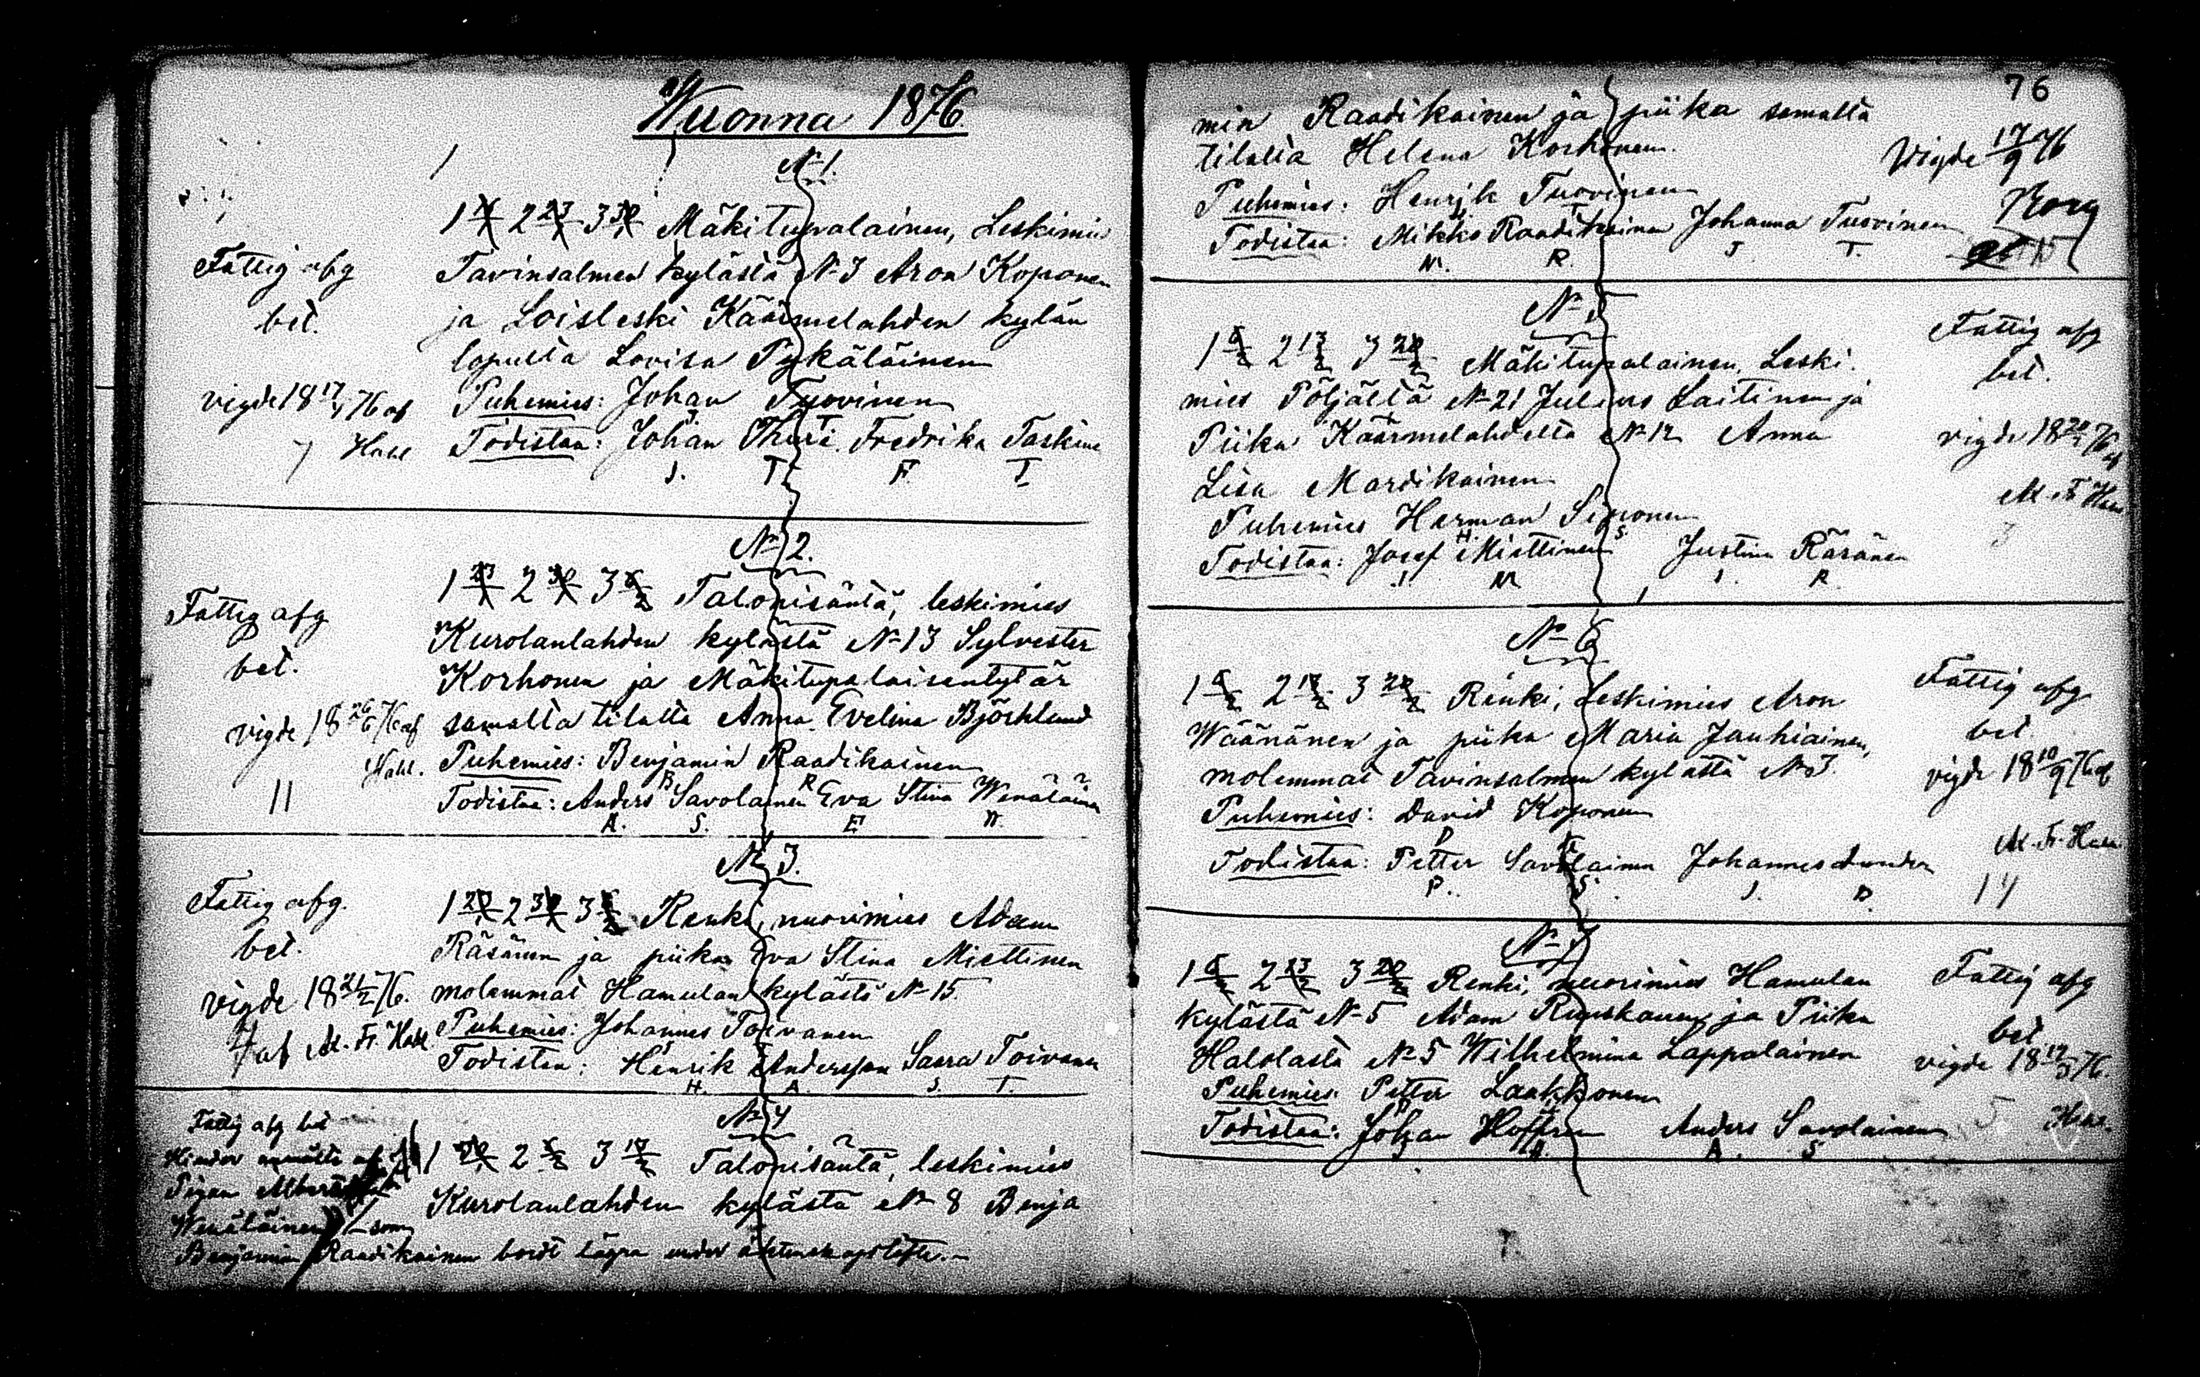 Wuonna 1876
N 1.
Fattig afg
bet.
vigde 18 17/4 76 af
Hahl
7
1 2 23/1 3 30/1 Mäkitupalainen, Leskimies
Tavinsalmen kylästä N 3 Aron Koponen
ja Loisleski Käärmelahden kylän
lopulta Lovisa Pykäläinen
Puhemies: Johan Tuovinen
J. T.
Todistaa: Johan Fredrika Taskinen
J. T. F. T.
N 2.
Fattig afg
bet.
vigde 18 26/6 76 af
Hahl.
11
1 23/1 2 30/1 3 6/2 Talonisäntä, leskimies
Kurolanlahden kylästä N 13 Sylvester
Korhonen ja Mäkitupalaisentytär
samalta tilalta Anna Evelina Björklund
Puhemies: Benjamin Raadikainen
B R
Todistaa: Anders Savolainen Eva Stina Wenäläinen
A. S. E W.
N 3.
Fattig afg.
bet.
vigde 18 21/2 76.
af M. Fr. Hahl
1 23/1 2 30/1 3 6/2 Renki, nuorimies Adam
Räsänen ja piika Eva Stina Miettinen
molemmat Hamulan kylästä N 15.
Puhemies: Johannes Toivanen
J T
Todistaa: Henrik Andersson Saara Toivanen
H. A. S. T.
N 4
Fattig afg bet
Hinder af
Pigan
Wenäläinen som
Benjamin Raadikainen bordt lägra under äktenskapslöfte.
1 30/1 2 6/2 3 13/2 Talonisäntä, leskimies
Kurolanlahden kylästä N 8 Benja
76
min Raadikainen ja piika samalta
tilalta Helena Korhonen.
Puhemies: Henrik Tuovinen
H T
Todistaa: Mikko Raadikainen Johanna Tuovinen
M. R. J. T.
Vigde 17/9 76
N 5
1 6/2 2 13/2 3 20/2 Mäkitupalainen, Leski-
mies Pöljältä N 21 Julius Laitinen ja
Piika Käärmelahdelta N 12 Anna
Lisa Mardikainen
Puhemies Herman Seponen
H. S.
Todistaa: Josef Miettinen Justina Räsänen
J M J. R.
Fattig afg
bet.
vigde 18 20/2 76 af
M. Fr Hahl
3
N 6
1 6/2 2 13/2 3 20/2 Renki, Leskimies Aron
Wäänänen ja piika Maria Jauhiainen,
molemmat Tavinsalmen kylältä N 3.
Puhemies: David Koponen
D K
Todistaa: Petter Savolainen Johannes
P. S. J. D.
Fattig afg
bet
vigde 18 10/9 76 af
M. Fr. Hahl
14
N 7
1 6/2 2 13/2 3 20/2 Renki, nuorimies Hamulan
kylästä N 5 Adam Ruuskanen ja Piika
Halolasta N 5 Wilhelmina Lappalainen
Puhemies: Petter Laakkonen
Todistaa: Johan Hoffren Anders Savolainen
H A. S
Fattig afg
bet
vigde 18 19/3 76.
5 Hahl.